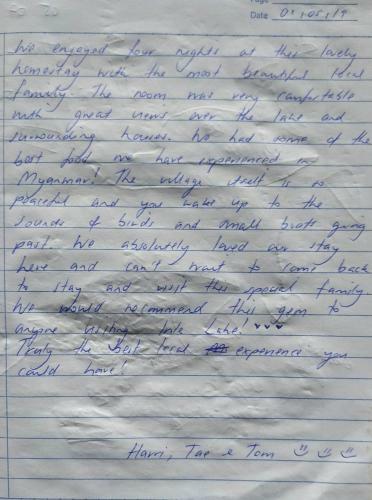 Page
Date 01.05.19
We enjoyed four nights at this lovely
homestay with the most beautiful local
family. The room was very comfortable
with great views over the lake and
surrounding houses. We had some of the
best food we have experienced in
Myanmar! The village itself is so
peaceful and you wake up to the
sounds of birds and small boats going
past. We absolutely loved our stay
here and can't wait to come back
to stay and visit this special family.
We would recommend this gem to
anyone visiting Inle Lake! ♥♥♥
Truly the best local experience you
could have!
Harri, Tae & Tom ☺ ☺ ☺